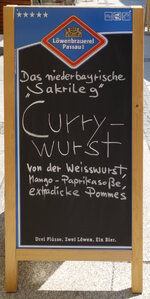 Löwenbrauerei
Passau
Das niederbayrische
"Sakrileg"
"Curry-
wurst
von der Weisswurst,
Mango-Paprikasoße,
extradicke Pommes
Drei Flüsse. Zwei Löwen. Ein Bier.